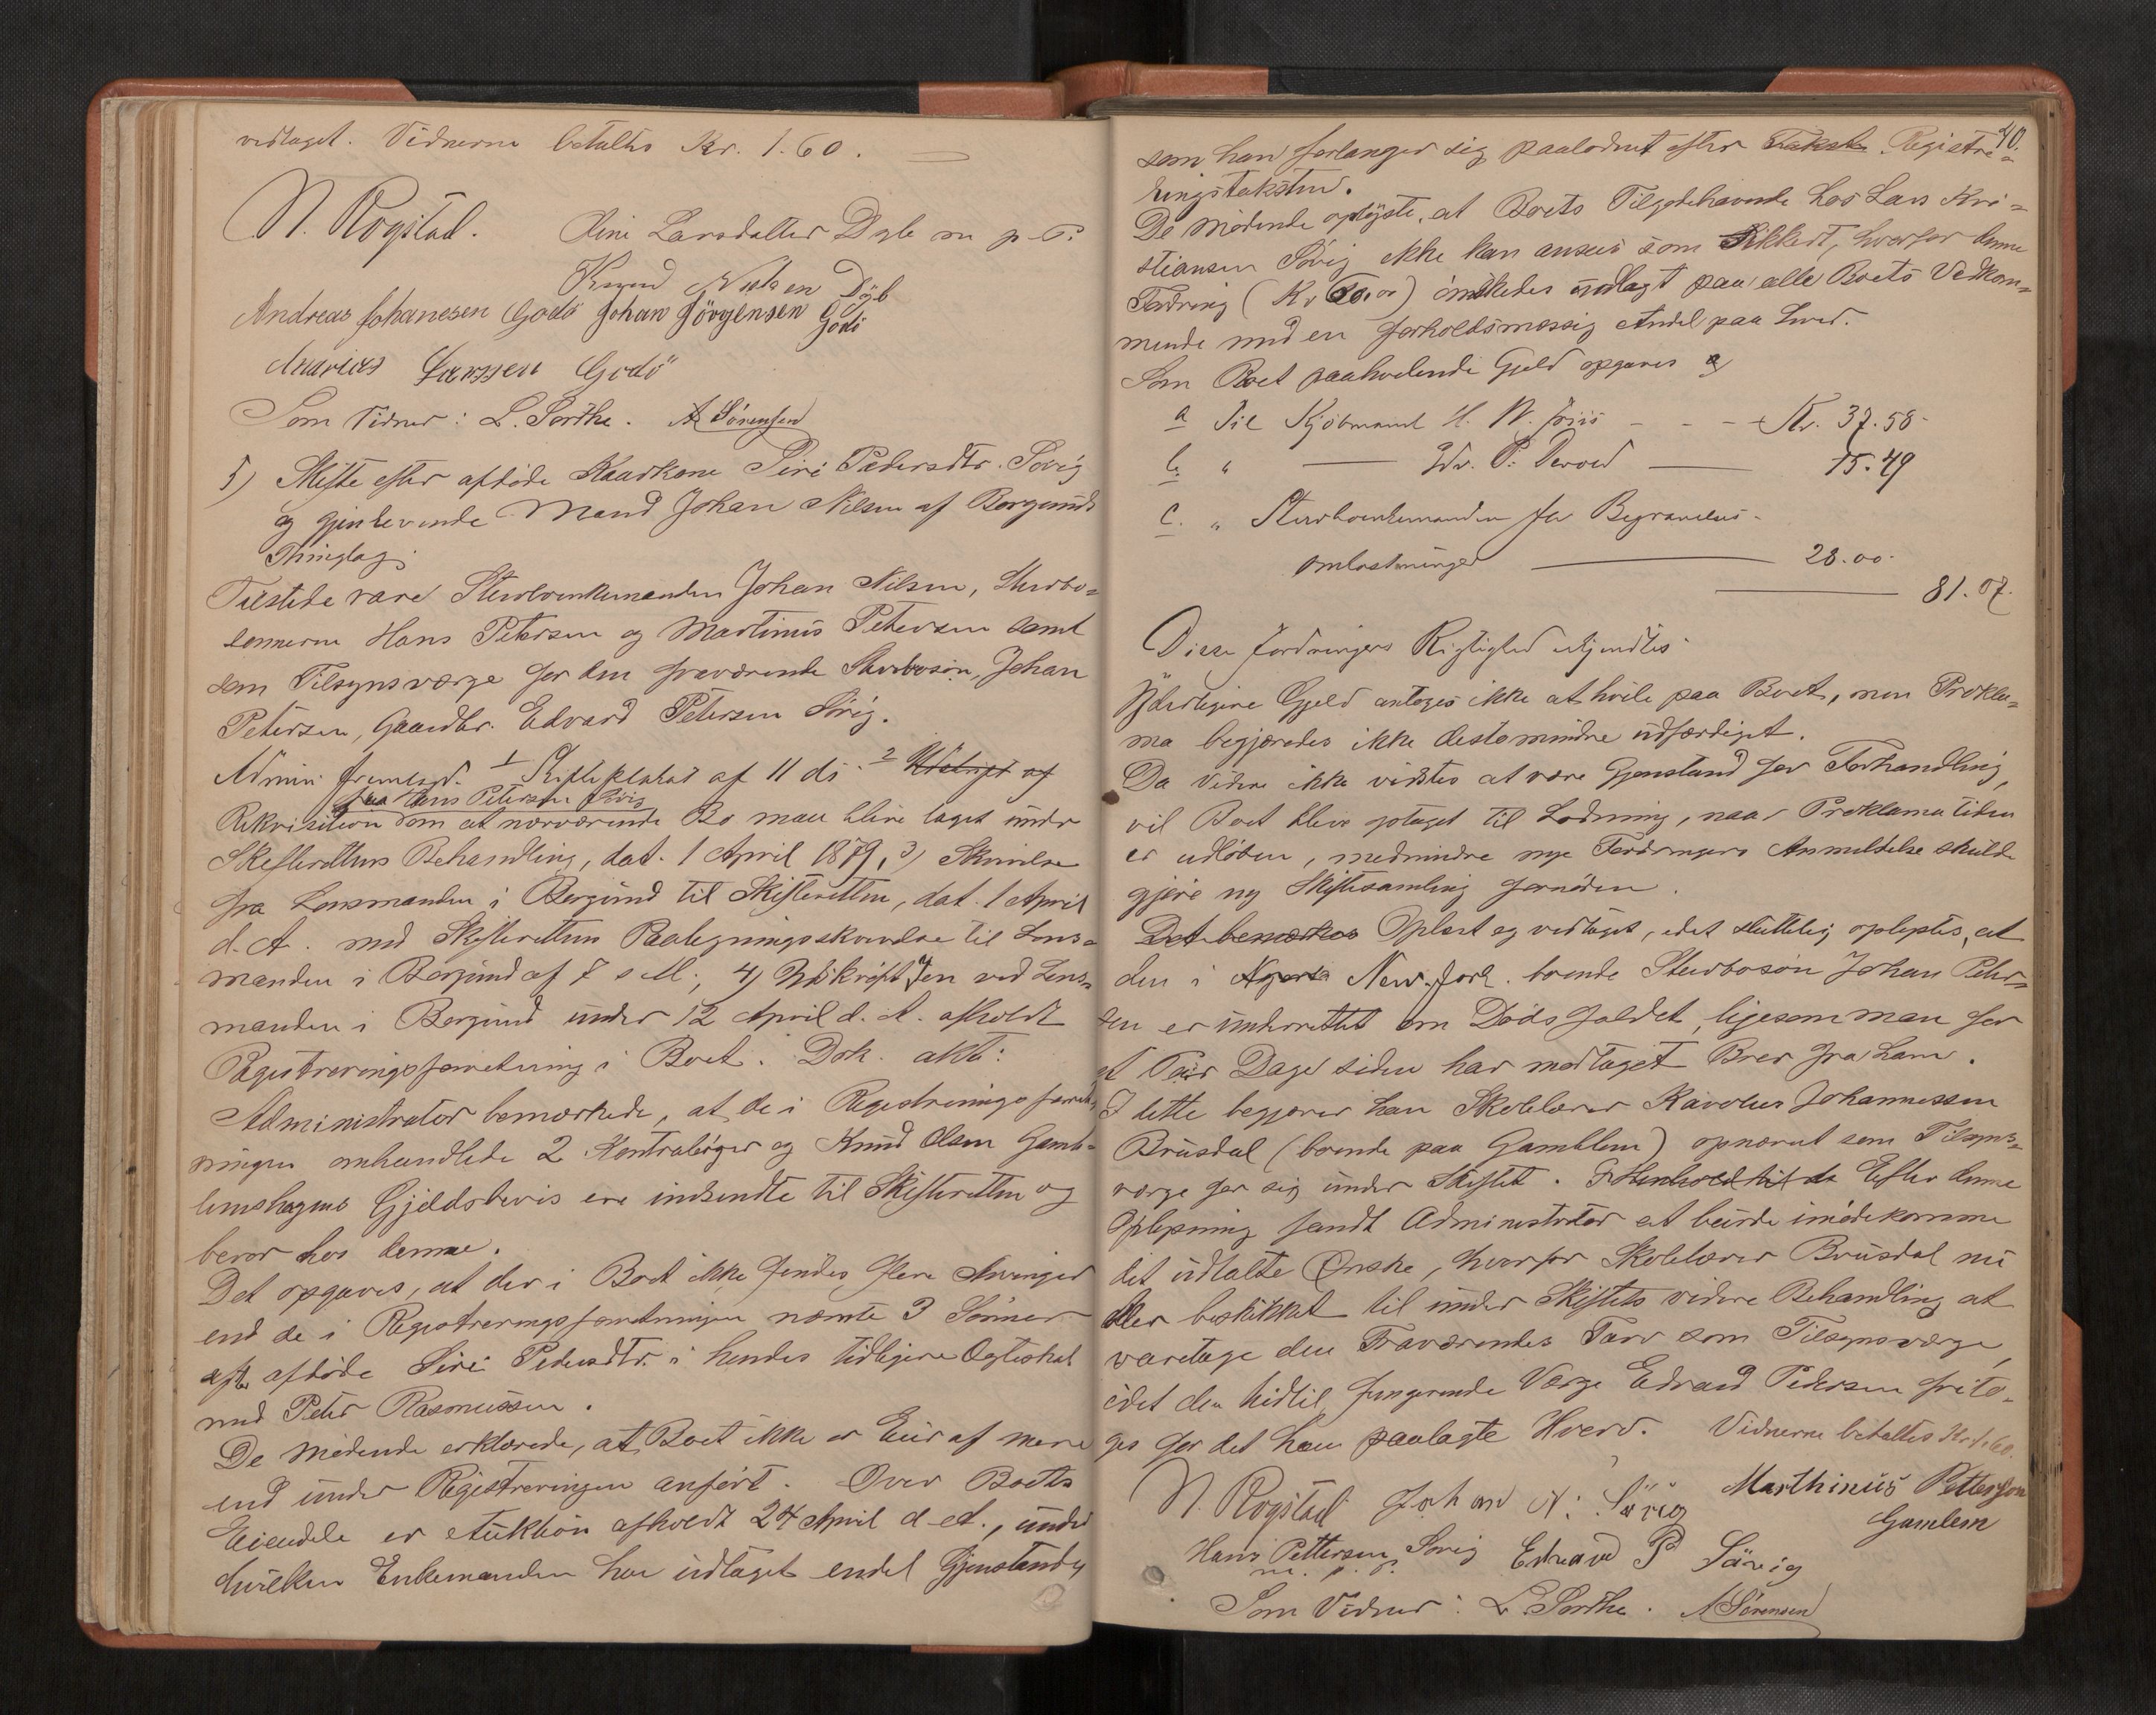 vedtaget. Vidnerne betaltes Kr. 1.60.
N. Rogstad. Larsdatter m. p. P.
Knud Dyb
Andreas Johanesen Godö Johan Jörgensen Godö
Godö
Som Vidner: L. Sorthe. A Sörensen
5) Skifte efter afdöde Kaarkone Siri Pedersdtr. Sövig
og gjenlevende Mand Johan Nilsen af Borgunds
Thinglag.
Tilstede vare Sterboenkemanden Johan Nilsen, Sterbo=
sönnerne Hans Petersen og Martinus Petersen samt
som Tilsynsværge for den fraværende Sterbosön, Johan
Petersen, Gaardbr. Edvard Petersen Sövig.
Admin. fremlagde 1 Skifteplakat af 11 ds. 2 Udskrift af
fra Hans Petersen Sövig
Rekvisition om at nærværende Bo maa blive taget under
Skifterettens Behandling, dat. 1 April 1879, 3) Skrivelse
fra Lensmanden i Borgund til Skifteretten, dat. 1 April
d. A. med Skifterettens Paategningsskrivelse til Lens=
manden i Borgund af 7 s. M., 4) Udskrift af en ved Lens=
manden i Borgund under 12 April d. A. afholdt
Registreringsforretning i Boet. Dok. akt:
Administrator bemærkede, at de i Registreringsforret=
ningen omhandlede 2 Kontrabøger og Knud Olsen Gam=
lemshagens Gjeldsbevis ere indsendte til Skifteretten og
beror hos denne.
Det opgaves, at der i Boet ikke findes flere Arvinger
end de i Registreringsforretningen nævnte 3 Sönner
efter afdöde Siri Pedersdtr. i hendes tidligere Ægteskab
med Peter Rasmussen.
De mödende erklærede, at Boet ikke er Eier af mere
end under Registreringen anfört. Over Boets
Eiendele er Auktion afholdt 24 April d. A., under
hvilken Enkemanden har udtaget endel Gjenstande,
40.
som han forlanger sig paalodnet efter Takst Registre=
ringstaksten.
De mödende oplyste, at Boets Tilgodehavende hos Lars Kri=
stiansen Sövig ikke kan ansees som Sikkert, hvorfor denne
Fordring (Kr 60.00) önskedes udlagt paa alle Boets Vedkom=
mende med en forholdsmæssig Andel paa hver.
Som Boet paahvilende Gjeld opgaves
a Til Kjöbmand H. W. Friis - - - Kr. 37.58
b. " — P. Devold — 15.49
c. " Sterboenkemanden for Begravelses-
omkostninger — 28.00.
— 81.07.
Disse Fordringers Rigtighed erkjendtes.
Yderligere Gjeld antoges ikke at hvile paa Boet, men Prokla=
ma begjæredes ikke destomindre udfærdiget.
Da videre ikke vidstes at være Gjenstand for Forhandling,
vil Boet blive optaget til Lodning, naar Proklama tiden
er udlöben, medmindre nye Fordringers Anmeldelse skulde
gjøre ny Skiftesamling fornöden.
Det bemærkes Oplæst og vedtaget, idet sluttelig oplystes, at
den i New-Jork. boende Sterbosön Johan Peter=
sen er underrettet om Dödsfaldet, ligesom man for
et Par Dage siden har modtaget Brev fra ham.
I dette begjærer han Skolelærer Karolus Johannessen
Brusdal (boende paa Gamblem) opnævnt som Tilsyns=
værge for sig under Skiftet. I Henhold til de Efter denne
Oplysning fandt Administrator at burde imödekomme
det udtalte Ønske, hvorfor Skolelærer Brusdal nu
blev beskikket til under Skiftets videre Behandling at
varetage den Fraværendes Tarv som Tilsynsværge,
idet den hidtil fungerende Værge Edvard Pedersen frita=
ges for det ham paalagte Hverv. Vidnerne betaltes Kr. 1.60.
N. Rogstad Johan N: Sövig Marthinus Pettersen
Gamlem
Hans Pettersen Sovig Edvard P Sävig
m. p. P.
Som Vidner: L. Sorthe. A Sörensen